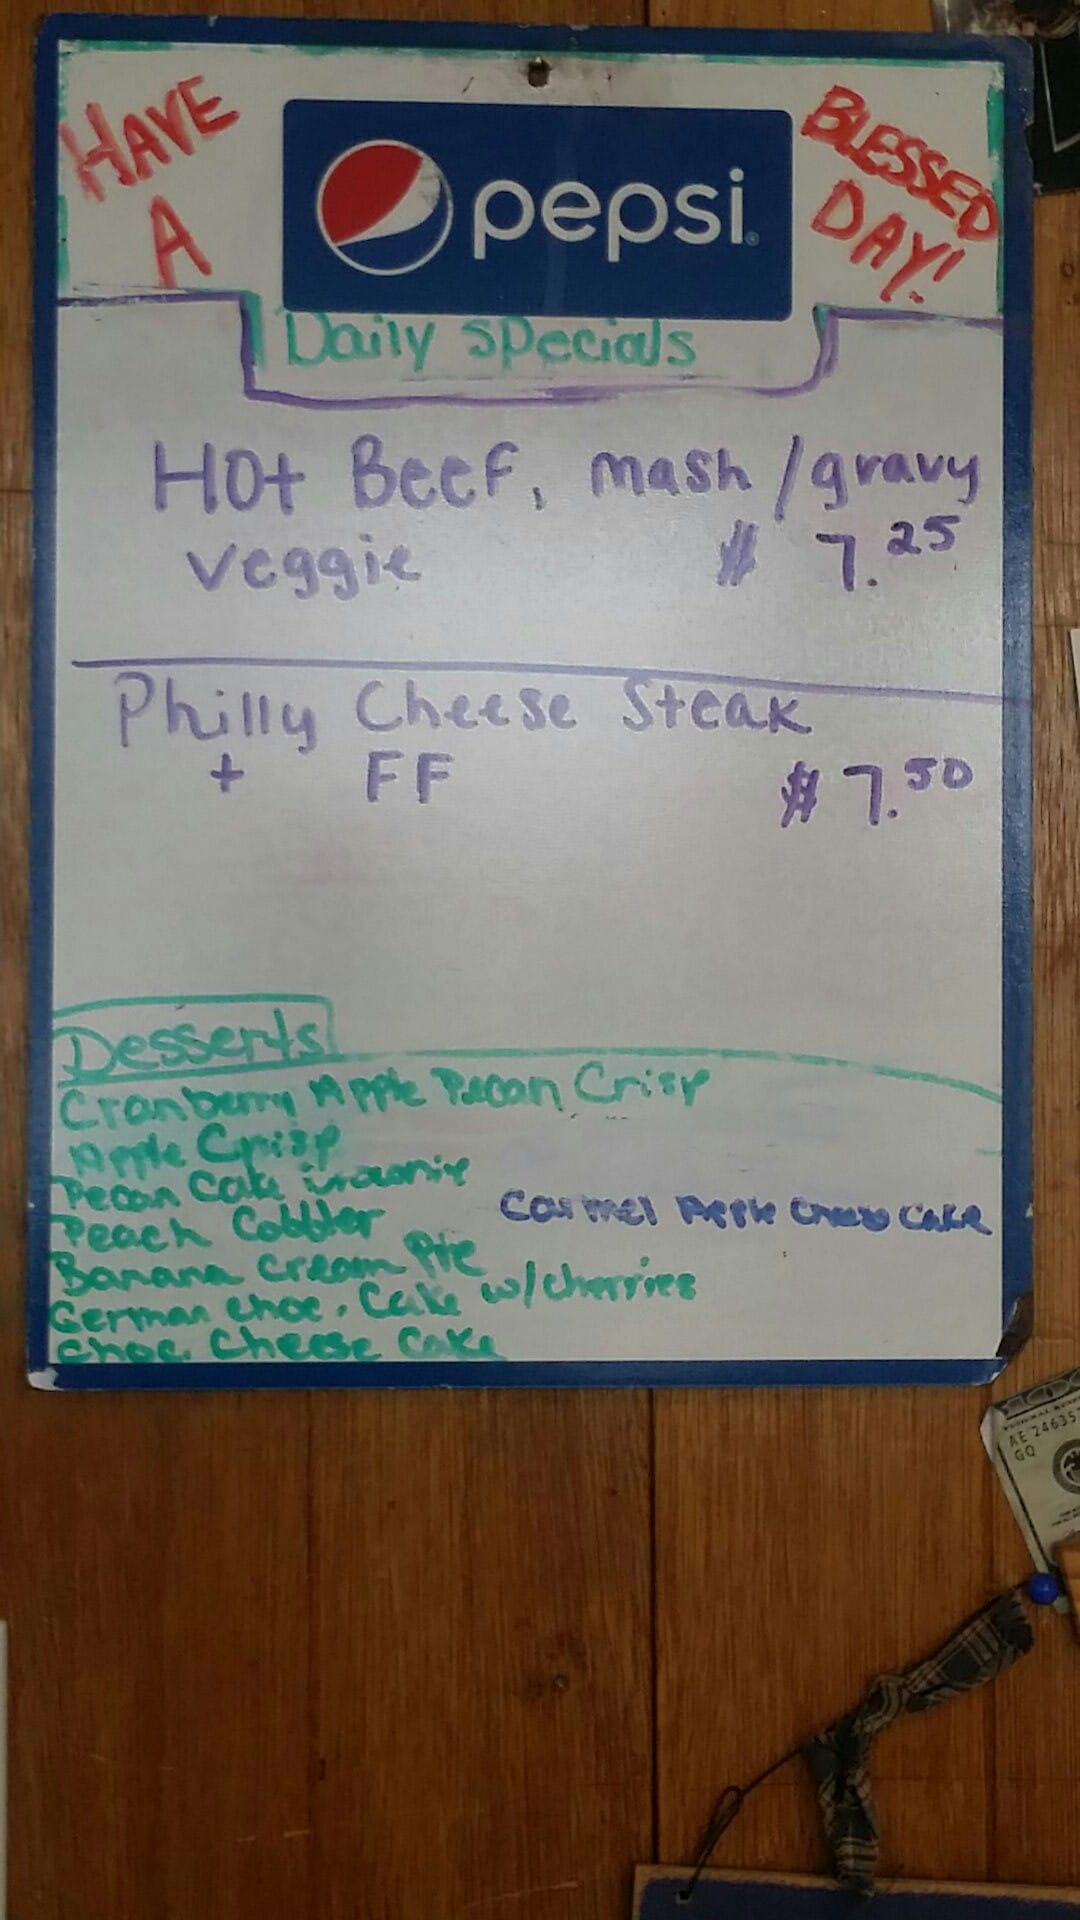 HAVE
A
pepsi
BLESSED
DAY!
Daily Specials
Hot Beef, mash/gravy
veggie $ 7.25
Philly Cheese Steak
+ FF $ 7.50
Desserts
Cranberry Apple Pecan Crisp
Apple Crisp
Pecan Cake brownie
Peach Cobbler
Carmel Apple Cheese Cake
Banana Cream Pie
German choc. Cake w/cherries
choc. Cheese Cake
AE 24635
GQ